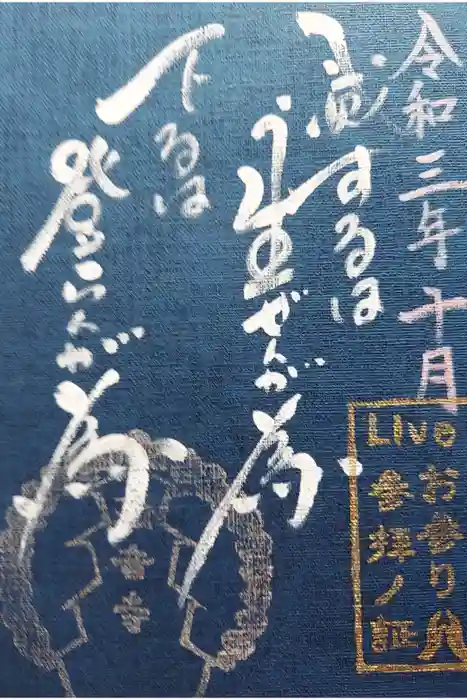 令和三年十月
するは
生ぜんが為
下るは
登らんが為
Live
お参り
参拝ノ証